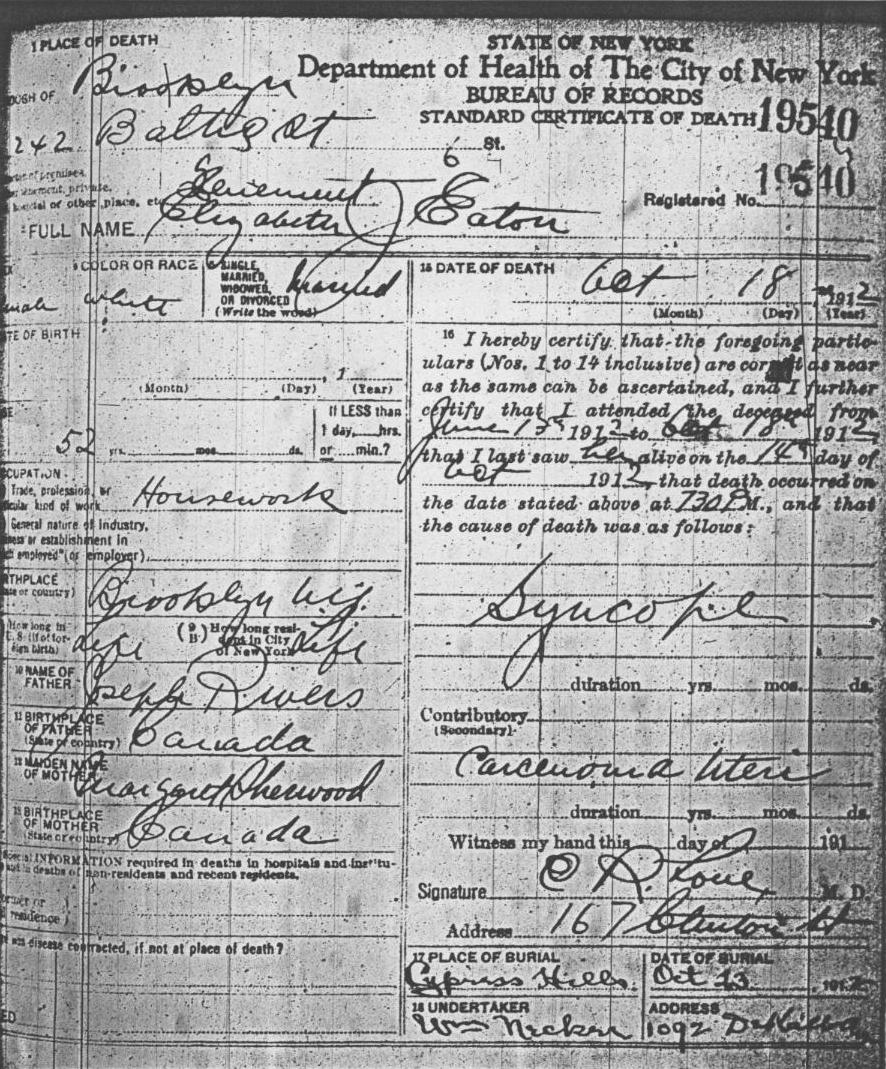 1 PLACE OF DEATH
STATE OF NEW YORK
Department of Health of The City of New York
BUREAU OF RECORDS
STANDARD CERTIFICATE OF DEATH
19540
OUGH OF Brooklyn
242 Baltic St St.
6
place, etc. Tenement
Registered No. 19540
FULL NAME Elizabeth J Eaton
COLOR OR RACE
white
SINGLE,
MARRIED,
WIDOWED,
OR DIVORCED
(Write the word)
Married
TE OF BIRTH
, 1
(Month) (Day) (Year)
52 yrs. mos. ds.
If LESS than
1 day, hrs.
or min.?
CCUPATION
Trade, profession, or
kind of work Housework
General nature of Industry,
or establishment in
employed (or employer)
RTHPLACE
(State or country) Brooklyn N.Y.
How long in
U. S. (if of for-
eign birth) life
(9 B) How long resi-
dent in City
of New York life
10 NAME OF
FATHER Joseph Rivers
11 BIRTHPLACE
OF FATHER
(State or country) Canada
12 MAIDEN NAME
OF MOTHER Margaret Sherwood
13 BIRTHPLACE
OF MOTHER
(State or country) Canada
Special INFORMATION required in deaths in hospitals and institu-
and in deaths of non-residents and recent residents.
residence
was disease contracted, if not at place of death?
15 DATE OF DEATH
Oct 18 1912
(Month) (Day) (Year)
16 I hereby certify that the foregoing partic-
ulars (Nos. 1 to 14 inclusive) are correct as near
as the same can be ascertained, and I further
certify that I attended the deceased from
June 1912 to Oct 18th 1912,
that I last saw her alive on the 14th day of
Oct 1912, that death occurred on
the date stated above at 730 P M., and that
the cause of death was as follows:
Syncope
duration yrs. mos. ds.
Contributory
(Secondary)
Carcenoma Uteri
duration yrs. mos. ds.
Witness my hand this day of 191
Signature M. D.
Address 167 Clinton St
17 PLACE OF BURIAL
Cypress Hills
DATE OF BURIAL
Oct 23 1912
18 UNDERTAKER
Wm
ADDRESS
1092 DeKalb